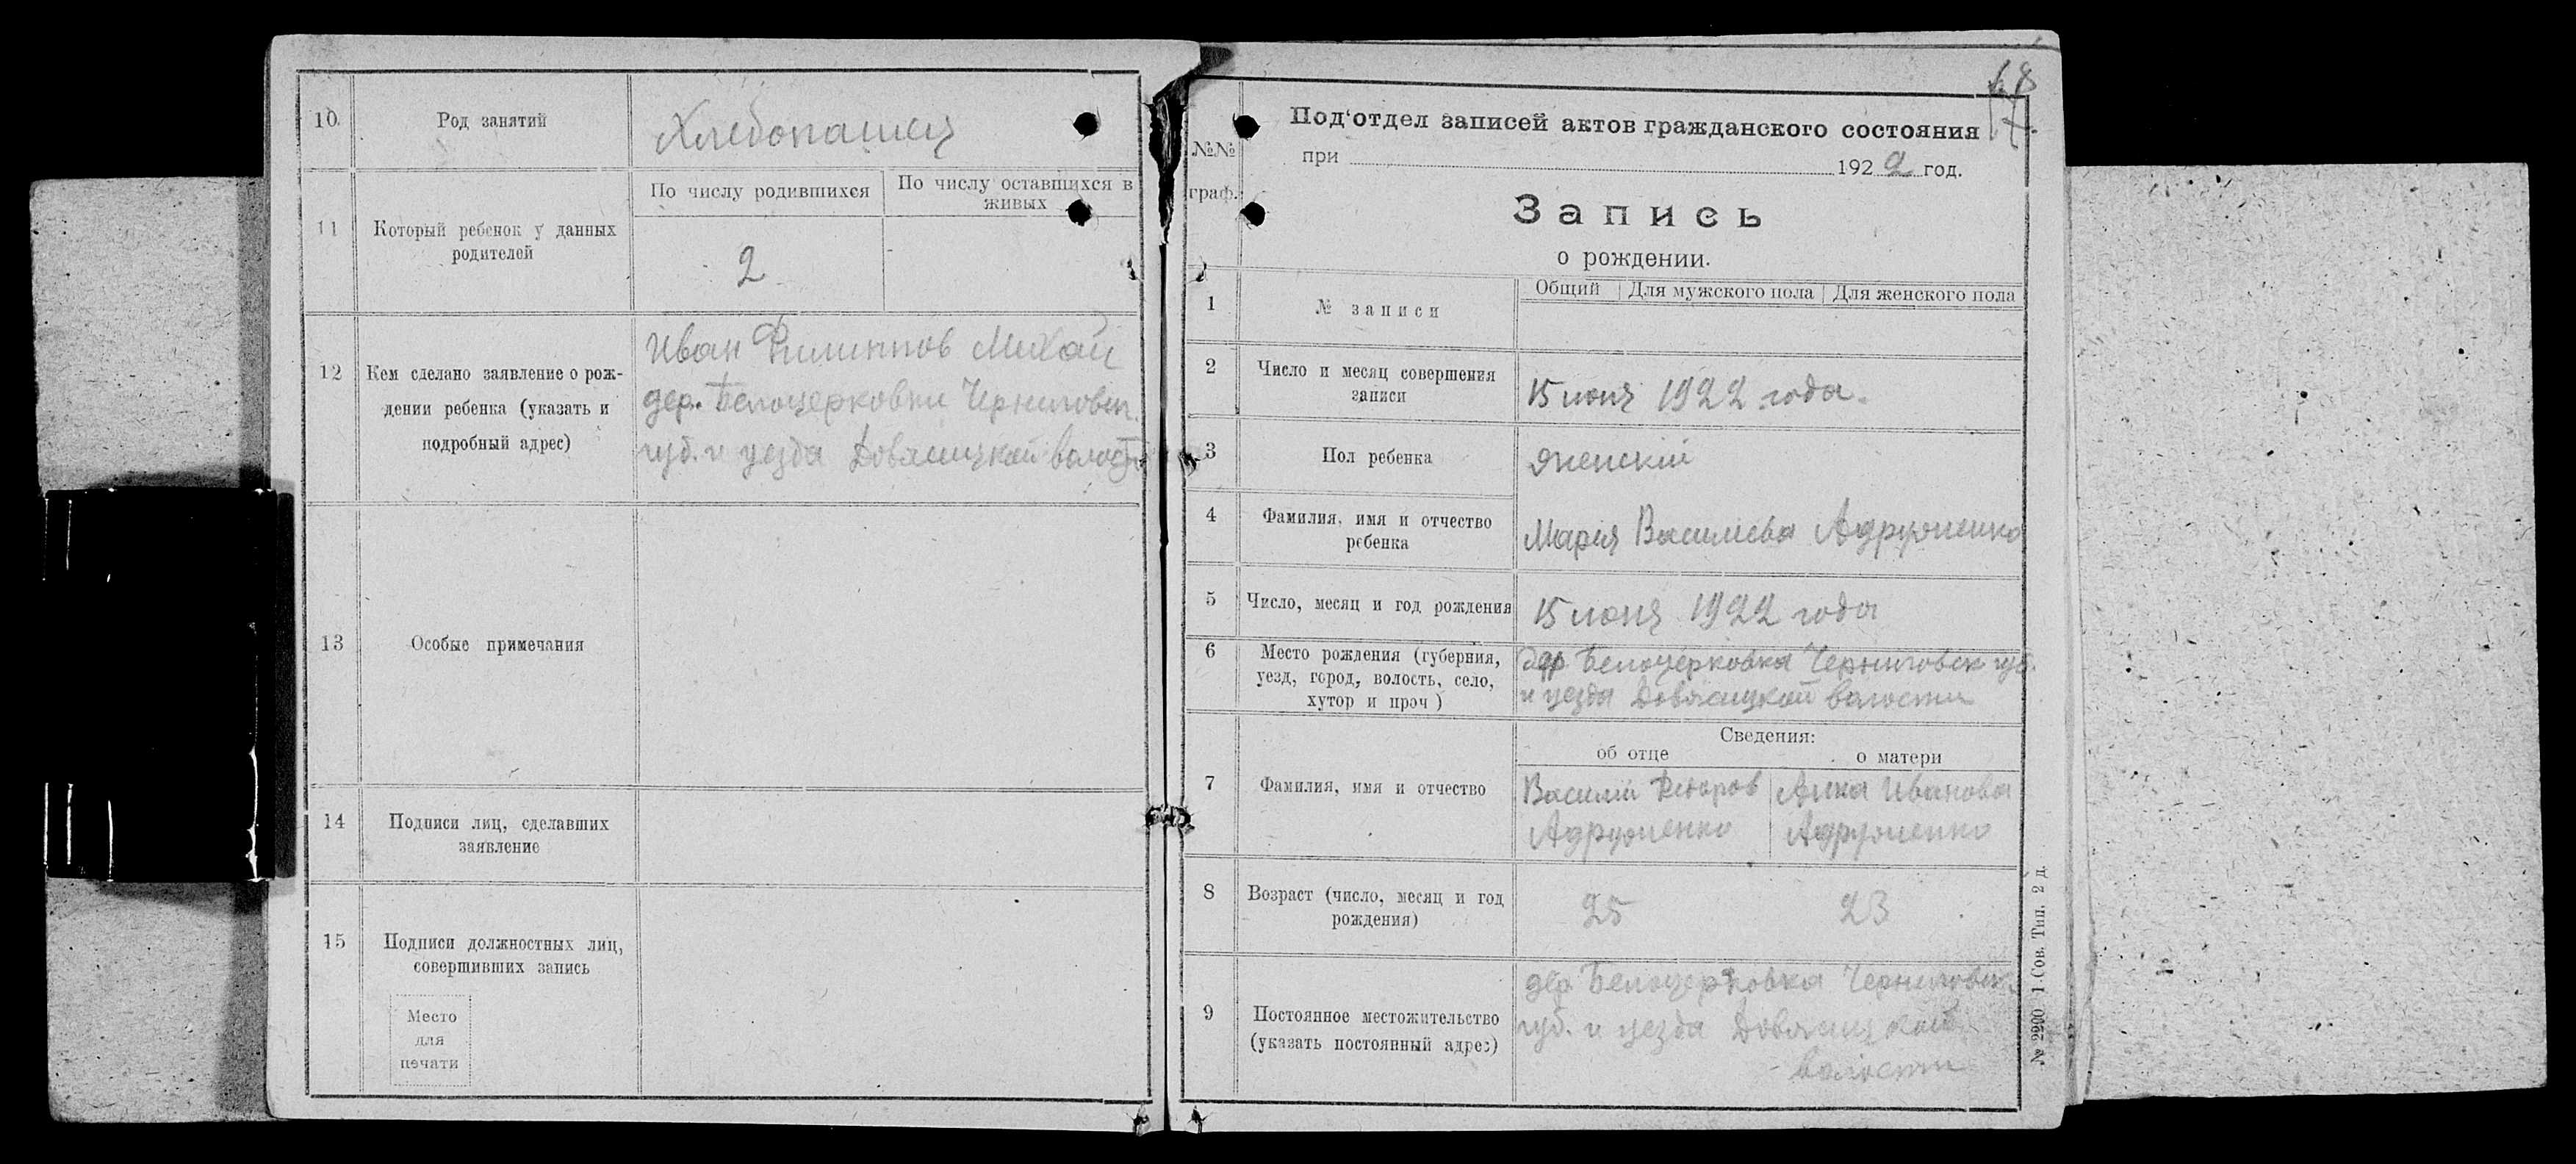 10.
Род занятий
Хлебопашец
11
Который ребенок у данных
родителей
По числу родившихся
По числу оставшихся в
живых
2
12
Кем сделано заявление о рож-
дении ребенка (указать и
подробный адрес)
Иван Филиппов Михай
дер. Белоцерковки Черниговск.
губ. и уезда Довжицкой волости
13
Особые примечания
14
Подписи лиц, сделавших
заявление
15
Подписи должностных лиц,
совершивших запись
Место
для
печати
№№
граф.
Под'отдел записей актов гражданского состояния
при 1922 год.
Запись
о рождении.
1
№ записи
Общий Для мужского пола Для женского пола
2
Число и месяц совершения
записи
15 июня 1922 года.
3
Пол ребенка
женскій
4
Фамилия, имя и отчество
ребенка
Марія Василиева Адруженко
5
Число, месяц и год рождения
15 июня 1922 года
6
Место рождения (губерния,
уезд, город, волость, село,
хутор и проч)
дер Белоцерковка Черниговск губ.
и уезда Довжицкой волости
7
Фамилия, имя и отчество
Сведения:
об отце
о матери
Василий Федоров
Адруженко
Анна Иванова
Адруженко
8
Возраст (число, месяц и год
рождения)
25
23
9
Постоянное местожительство
(указать постоянный адрес)
дер Белоцерковка Черниговск.
губ. и уезда Довжицкой
волости
№ 2200 1 Сов. Тип. 2 д.